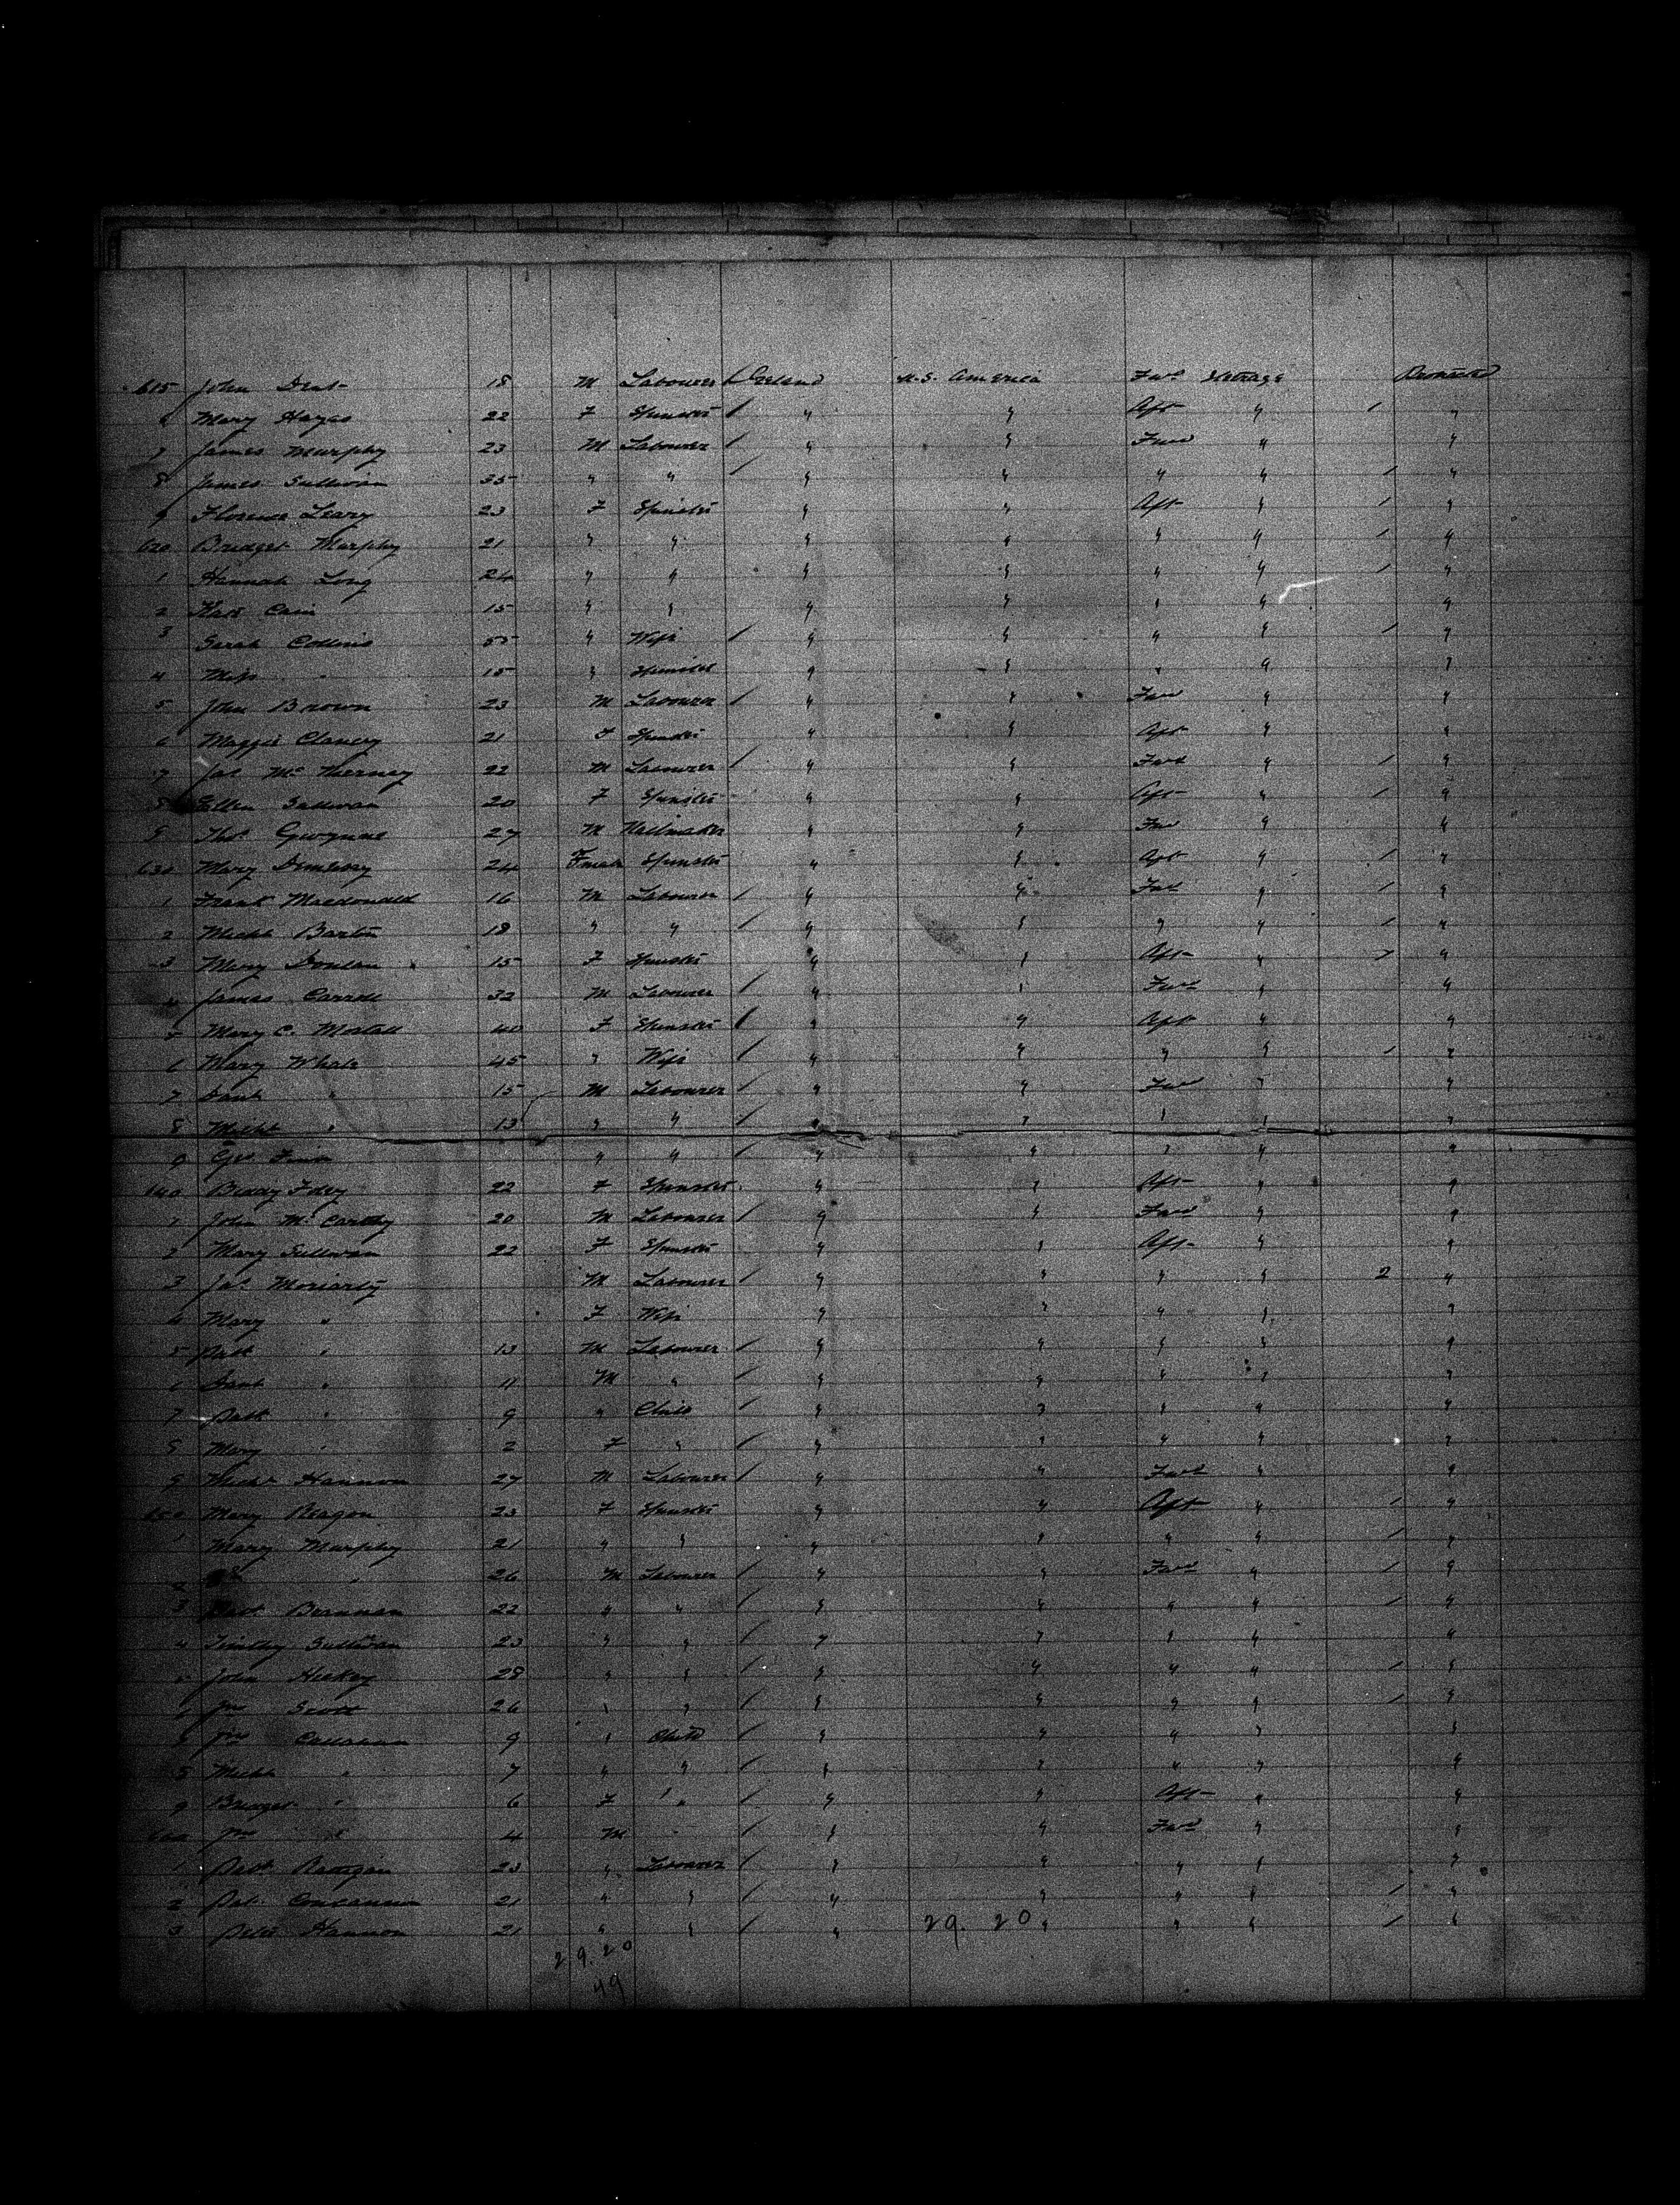 615 John Dent 18 M Labourer Ireland U.S. America Fwd Steerage
6 Mary Hayes 22 F Spinster " " Aft "
7 James Murphy 23 M Labourer " " Fwd " "
8 James Sullivan 35 " " " " " " "
9 Florence Leary 23 F Spinster " " Aft " "
620 Bridget Murphy 21 " " " " " " "
1 Hannah Long 24 " " " " " " "
2 Kate Cain 15 " " " " " " "
3 Sarah Collins " Wife " " " " "
4 Miss " 15 " Spinster " " " " "
5 John Brown 23 M Labourer " " Fwd " "
6 Maggie Clancy 21 F Spinster " " Aft " "
7 Jas McKierney 22 M Labourer " " Fwd " "
8 Ellen Sullivan 20 F Spinster " " Aft " "
9 Thos Gwynne 27 M " " Fwd " "
630 Mary Dempsey 24 Spinster " " Aft " "
1 Frank Macdonald 16 M Labourer " " Fwd " "
2 Michl Barton 18 " " " " " " "
3 Mary Donlan 15 F Spinster " " Aft " "
4 James Carroll 32 M Labourer " " Fwd " "
5 Mary C. 40 F Spinster " " Aft " "
6 Mary 45 " Wife " " " " "
7 Danl " 15 M Labourer " " Fwd " "
8 Michl " 13 " " " " " " "
9 Geo Finn " " " " " " "
640 Biddy Foley 22 F Spinster " " Aft " "
1 John McCarthy 20 M Labourer " " Fwd " "
2 Mary Sullivan 22 F Spinster " " Aft " "
3 Jas Moriarty M Labourer " " " " 2 "
4 Mary " F Wife " " " " "
5 Patk " 13 M Labourer " " " " "
6 Danl " 11 M " " " " " "
7 Patk " 9 " Child " " " " "
8 Mary " 2 F " " " " " "
9 Michl Hannon 27 M Labourer " " Fwd " "
650 Mary Reagan 23 F Spinster " " Aft " "
1 Mary Murphy 21 " " " " " " "
2 " 26 M Labourer " " Fwd " "
3 Patk Brennan 22 " " " " " " "
4 Timothy Sullivan 23 " " " " " " "
5 John Hickey 28 " " " " " " "
6 Scott 26 " " " " " " "
Callahan 9 " Child " " " " "
8 Michl " 7 " " " " " " "
9 Bridget " 6 F " " " Aft " "
660 " 4 M " " " Fwd " "
1 Patk 23 " Labourer " " " " "
2 Pat. Concannon 21 " " " " " " "
3 Peter Hannon 21 " " " 29. 20 " " " "
29. 20
49